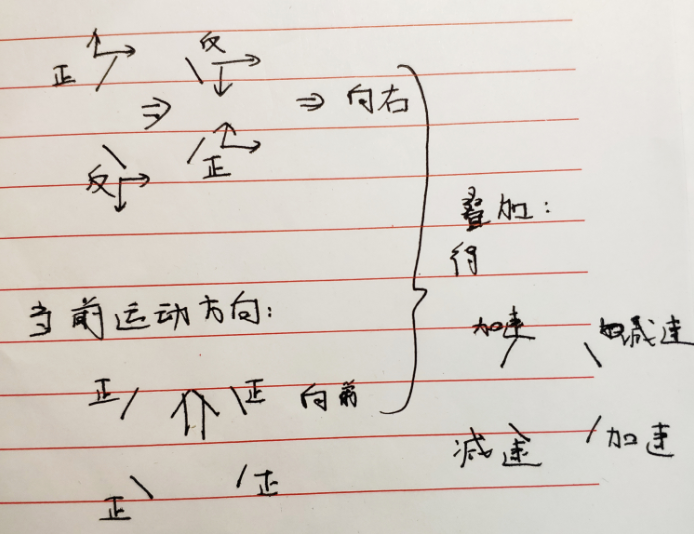 反
正
⇒ ⇒ 向右
反 正
叠加:
得
当前运动方向:
加速 减速
正 正 向前
减速 加速
正 正